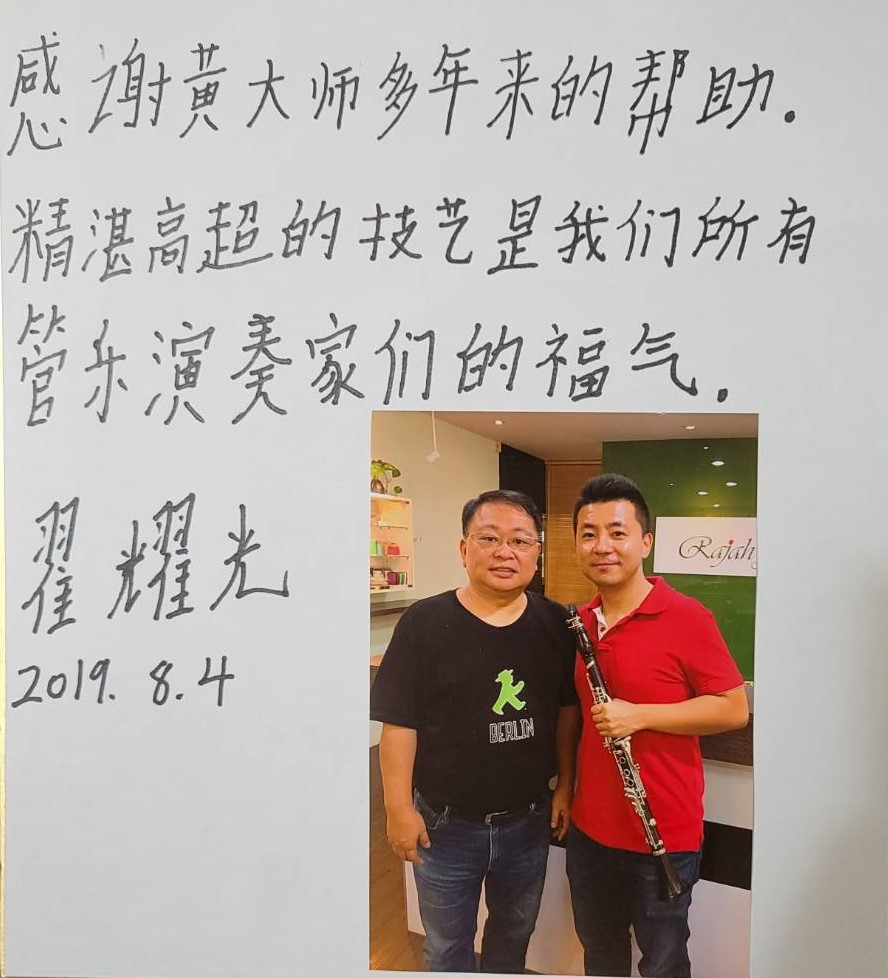 感谢黄大师多年来的帮助.
精湛高超的技艺是我们所有
管乐演奏家们的福气.
翟耀光
2019. 8.4
Rajah
BERLIN